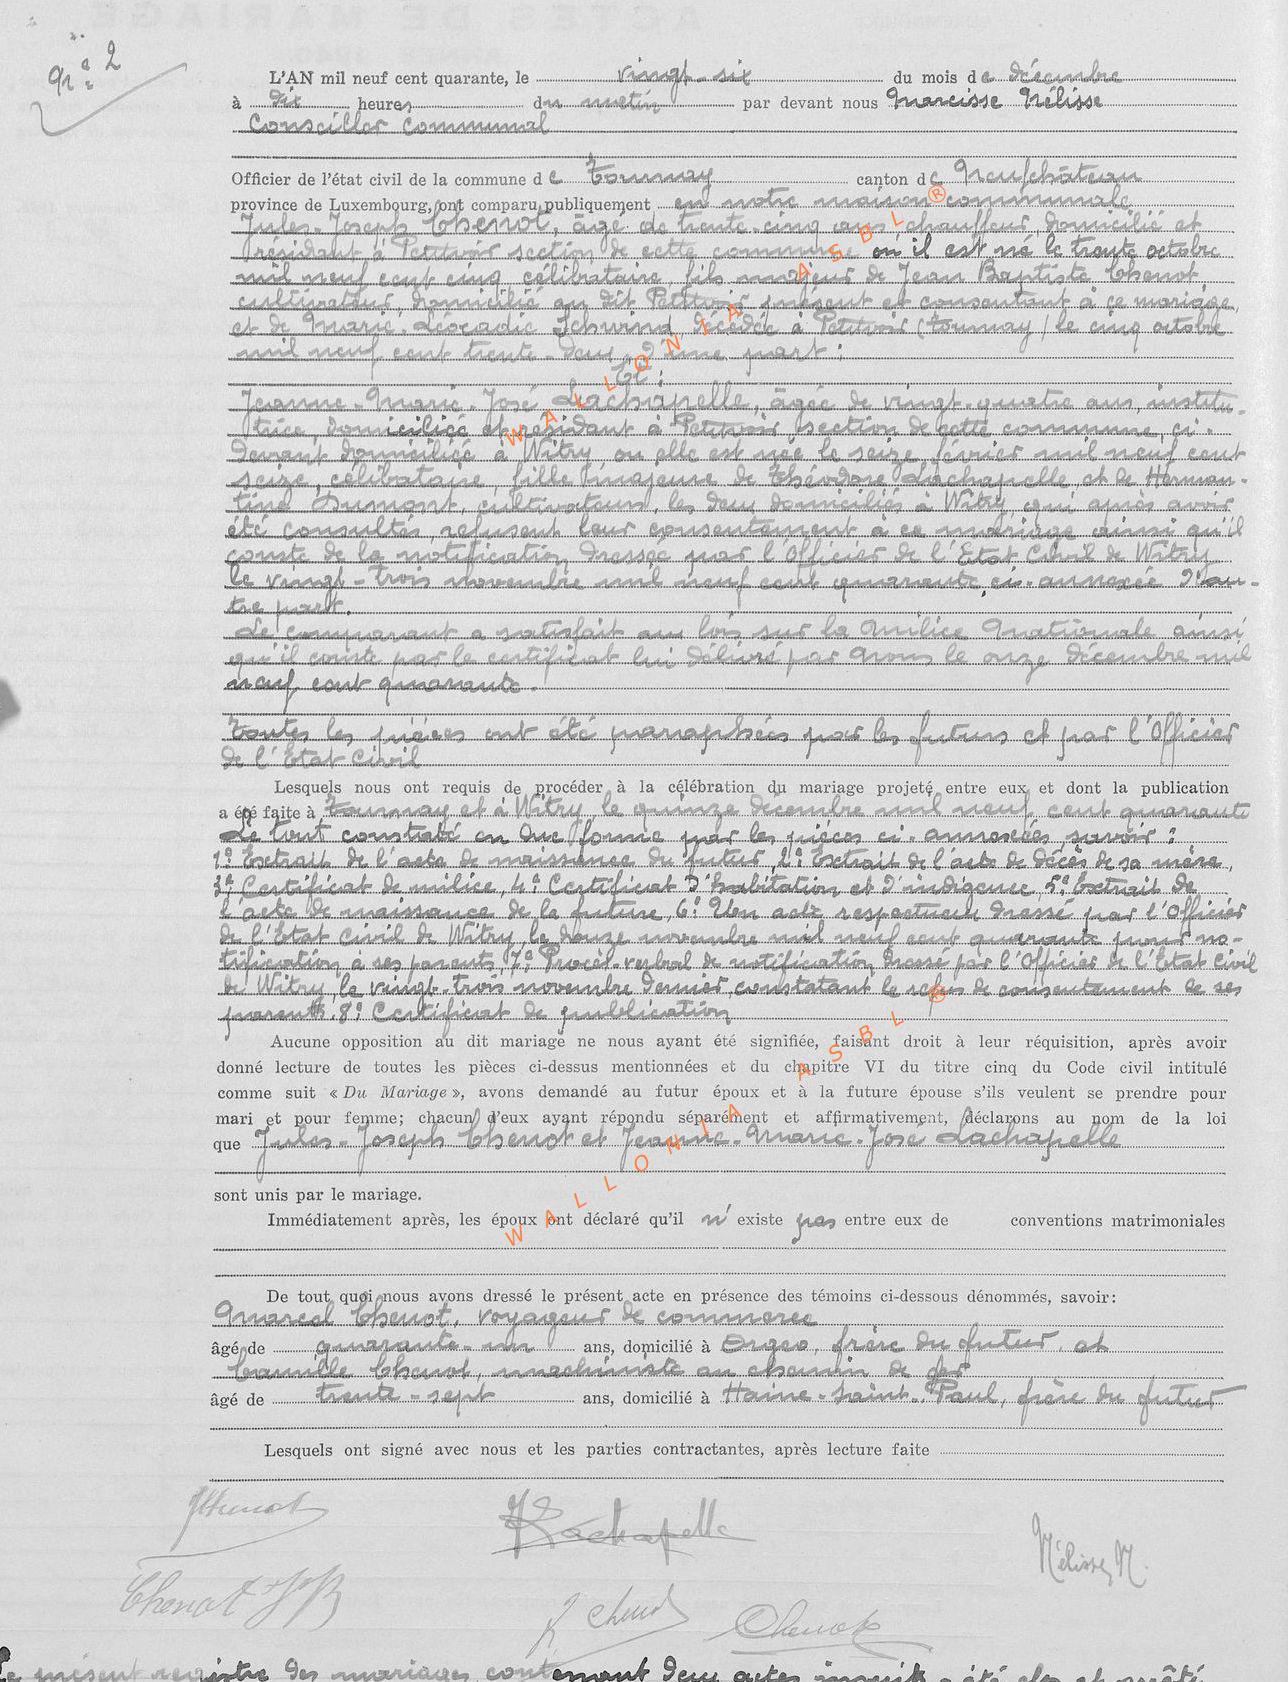 N° 2
L'AN mil neuf cent quarante, le vingt-six du mois de décembre
à dix heures du matin par devant nous Narcisse Nélisse
Conseiller Communal
Officier de l'état civil de la commune de Tournay canton de Neufchâteau
province de Luxembourg, ont comparu publiquement en notre maison communale
Jules-Joseph Chenot, âgé de trente-cinq ans, chauffeur, domicilié et
résidant à Petitvoir section de cette commune où il est né le trente octobre
mil neuf cent cinq, célibataire, fils majeur de Jean Baptiste Chenot
cultivateur, domicilié au dit Petitvoir présent et consentant à ce mariage,
et de Marie-Léocadie Schwind, décédée à Petitvoir (Tournay) le cinq octobre
mil neuf cent trente-deux, d'une part;
Et:
Jeanne-Marie-José Lachapelle, âgée de vingt-quatre ans, institu-
trice, domiciliée et résidant à Petitvoir section de cette commune, ci-
devant domiciliée à Witry, où elle est née le seize février mil neuf cent
seize, célibataire, fille majeure de Théodore Lachapelle et de Herman-
tine Dumont, cultivateurs, les deux domiciliés à Witry, qui après avoir
été consultés, refusent leur consentement à ce mariage ainsi qu'il
conste de la notification dressée par l'Officier de l'Etat Civil de Witry
le vingt-trois novembre mil neuf cent quarante, ci-annexée d'au-
tre part.
Le comparant a satisfait aux lois sur la Milice Nationale ainsi
qu'il conste par le certificat lui délivré par Nous le onze décembre mil
neuf cent quarante.
Toutes les pièces ont été paraphées par les futurs et par l'Officier
de l'Etat Civil
Lesquels nous ont requis de procéder à la célébration du mariage projeté entre eux et dont la publication
a été faite à Tournay et à Witry le quinze décembre mil neuf cent quarante
Le tout constaté en due forme par les pièces ci-annexées, savoir:
1° Extrait de l'acte de naissance du futur, 2° Extrait de l'acte de décès de sa mère,
3° Certificat de milice, 4° Certificat d'habitation et d'indigence, 5° Extrait de
l'acte de naissance de la future, 6° Un acte respectueux dressé par l'Officier
de l'Etat Civil de Witry, le douze novembre mil neuf cent quarante pour no-
tification à ses parents, 7° Procès-verbal de notification dressé par l'Officier de l'Etat Civil
de Witry, le vingt-trois novembre dernier, constatant le refus de consentement de ses
parents. 8° Certificat de publication
Aucune opposition au dit mariage ne nous ayant été signifiée, faisant droit à leur réquisition, après avoir
donné lecture de toutes les pièces ci-dessus mentionnées et du chapitre VI du titre cinq du Code civil intitulé
comme suit « Du Mariage », avons demandé au futur époux et à la future épouse s'ils veulent se prendre pour
mari et pour femme; chacun d'eux ayant répondu séparément et affirmativement, déclarons au nom de la loi
que Jules-Joseph Chenot et Jeanne-Marie-José Lachapelle
sont unis par le mariage.
Immédiatement après, les époux ont déclaré qu'il n'existe pas entre eux de conventions matrimoniales
De tout quoi nous avons dressé le présent acte en présence des témoins ci-dessous dénommés, savoir:
Marcel Chenot, voyageur de commerce
âgé de quarante-un ans, domicilié à Orgeo, frère du futur et
Camille Chenot, machiniste au chemin de fer
âgé de trente-sept ans, domicilié à Haine-Saint-Paul, frère du futur
Lesquels ont signé avec nous et les parties contractantes, après lecture faite
JChenot
JLachapelle
Nélisse, N.
Chenot J B
Chenot
Chenot
Le présent registre des mariages contenant deux actes inscrits a été clos et arrêté
WALLONIA ASBL ®
WALLONIA ASBL ®